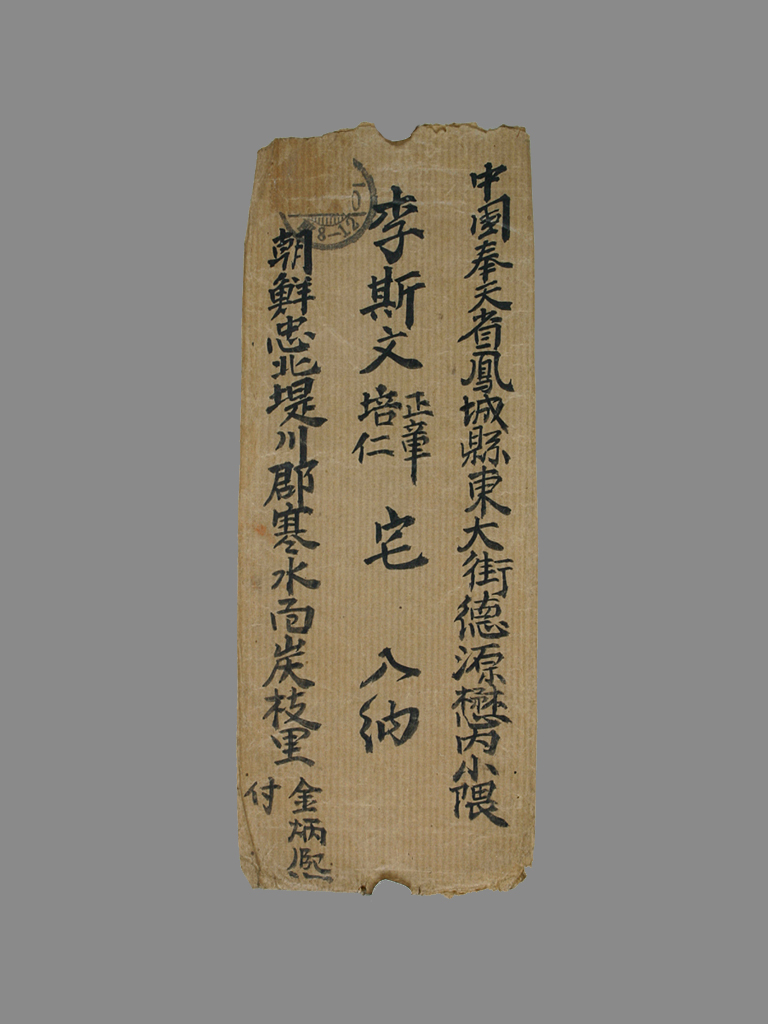 中國奉天省鳳城縣東大街德源懋內小隈
李斯文 正章 培仁 宅 入納
朝鮮忠北堤川郡寒水面炭枝里
金炳熙
付